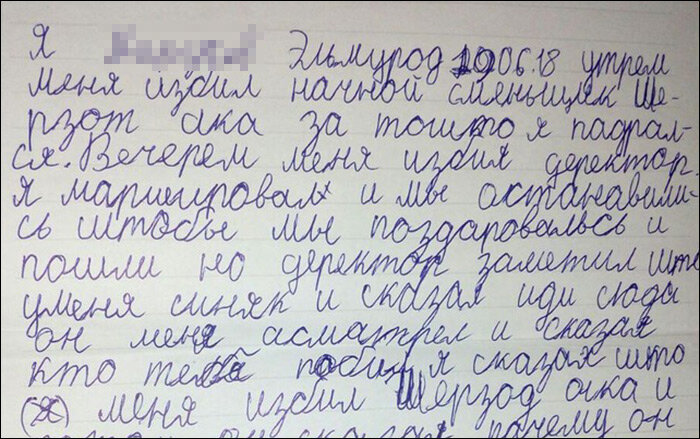 Я Эльмурод 19.06.18 утрем
меня избил начной сменьщик Ше-
рзот ака за тошто я падрал-
ся. Вечерем меня избил деректор.
я маришровал и мы останавили-
сь штобы мы поздаровалсь и
пошли но деректор заметил што
уменя синяк и сказал иди сюда
он меня асматрел и сказал
кто тебя побил я сказал што
(я) меня избил Шерзод ака и
он сказал почему он